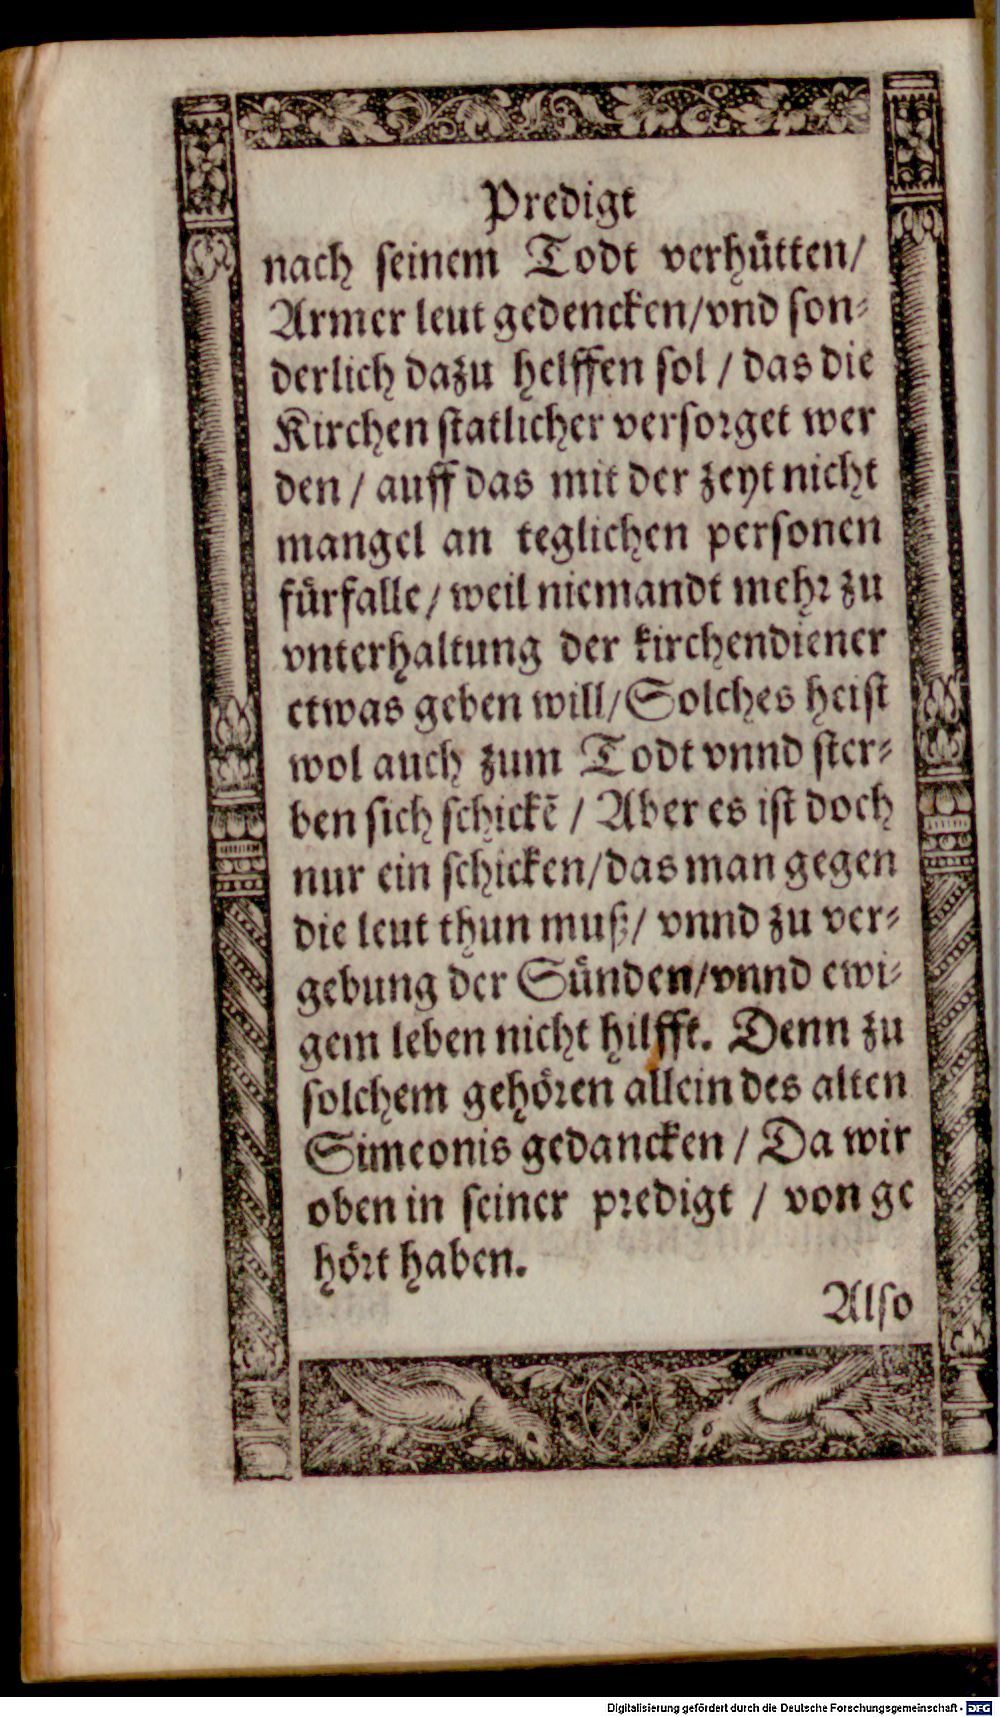 Predigt
nach seinem Todt verhütten/
Armer leut gedencken/vnd son-
derlich dazu helffen sol / das die
Kirchen statlicher versorget wer
den / auff das mit der zeyt nicht
mangel an teglichen personen
fürfalle/ weil niemandt mehr zu
vnterhaltung der kirchendiener
etwas geben will/Solches heist
wol auch zum Todt vnnd ster-
ben sich schickē / Aber es ist doch
nur ein schicken/das man gegen
die leut thun muß/ vnnd zu ver-
gebung der Sünden/vnnd ewi-
gem leben nicht hilfft. Denn zu
solchem gehören allein des alten
Simeonis gedancken / Da wir
oben in seiner predigt / von ge
hört haben.
Also
Digitalisierung gefördert durch die Deutsche Forschungsgemeinschaft - DFG